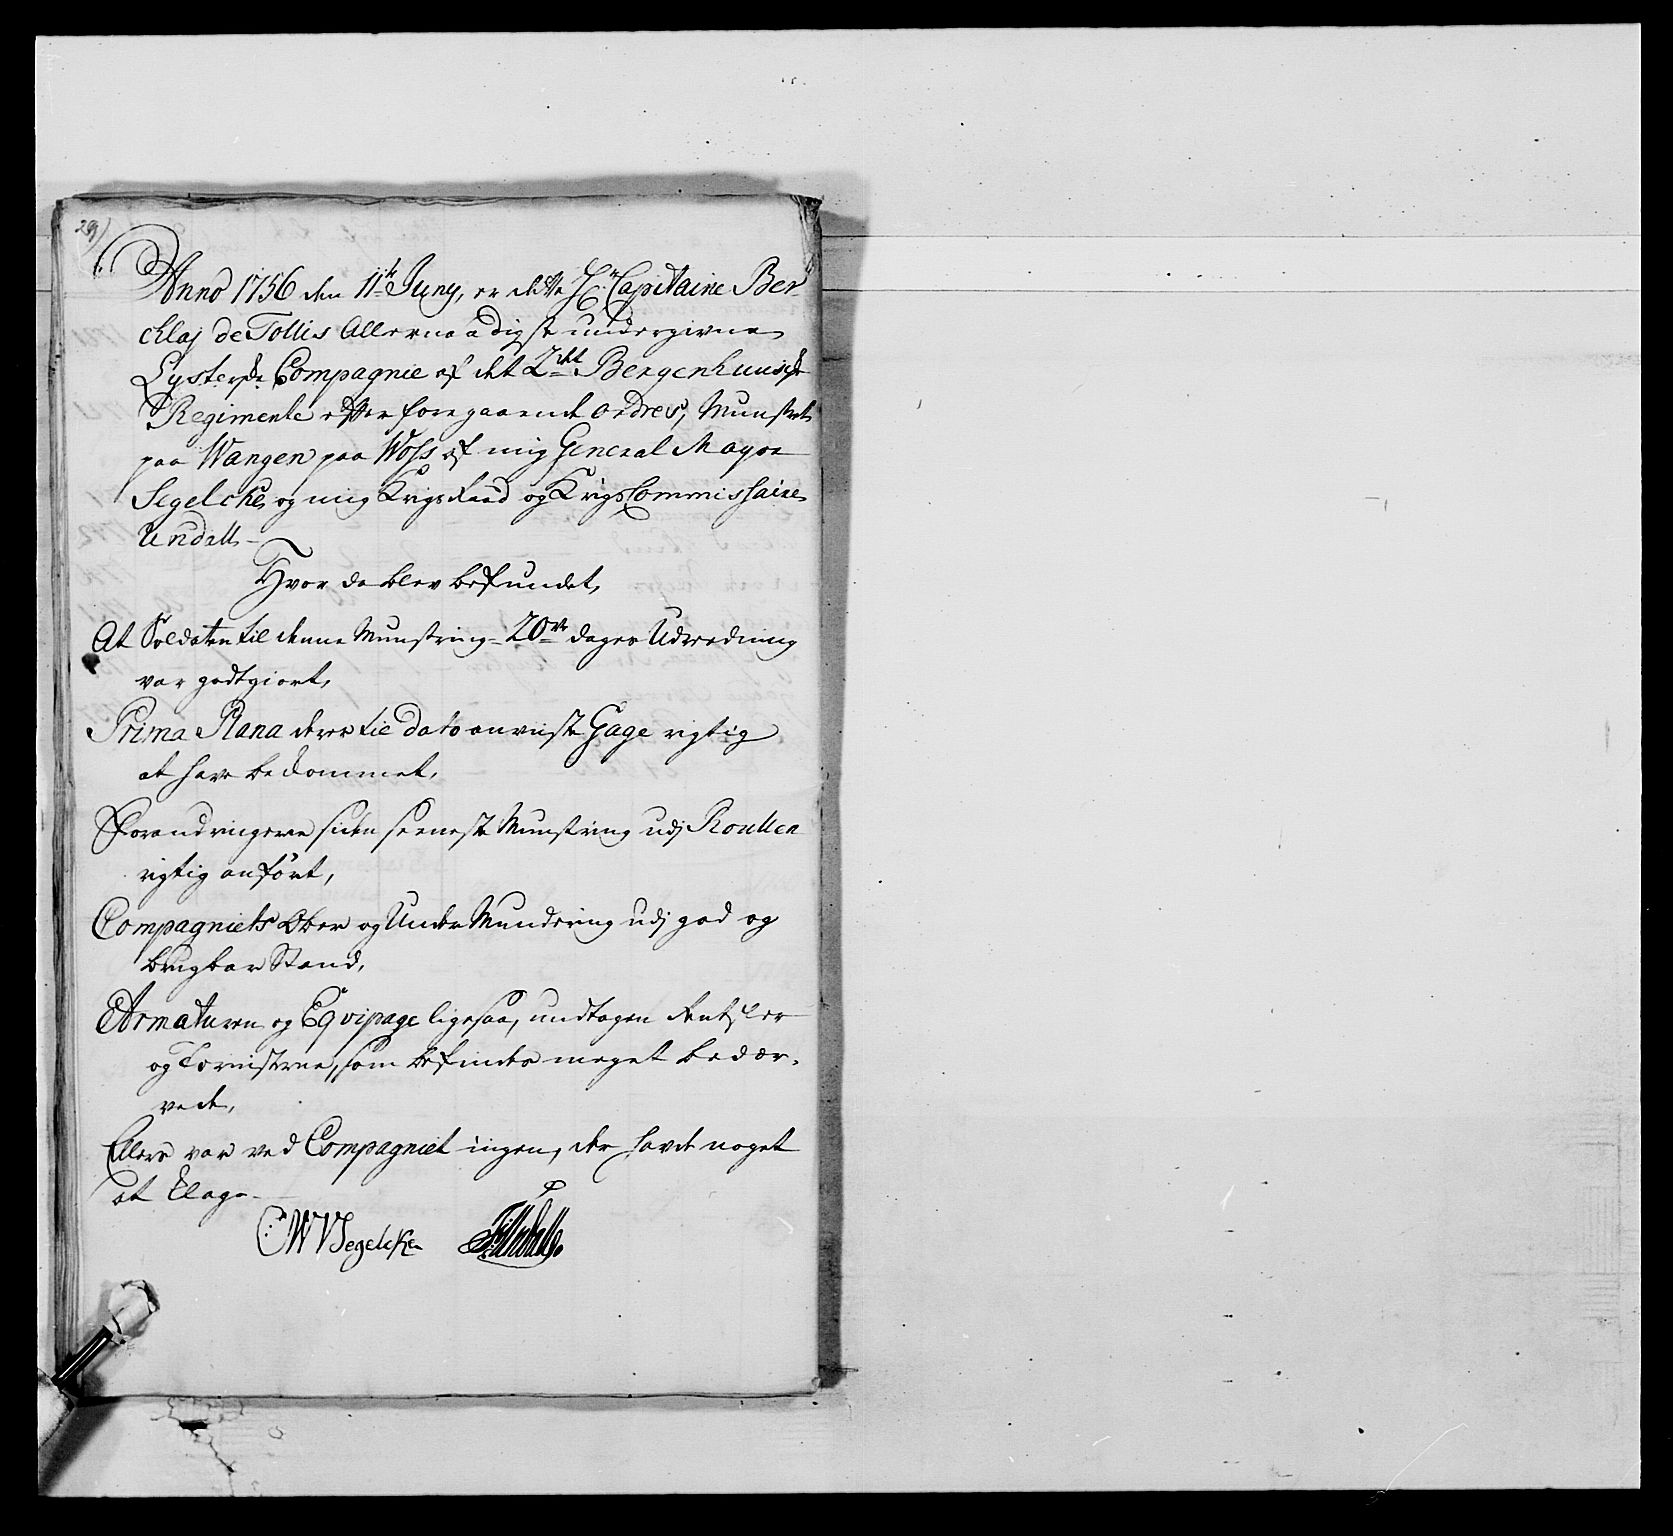 29)
Anno 1756 den 11te Juny, er dette Hr. Capitaine Ber-
cklaj de Tollis Allernaadigst undergivne
Lysterske Compagnie af det 2det Bergenhuusiske
Regimente efter foregaaende ordres, Munstret
paa Wangen paa Woss af mig General Major
Segelcke, og mig Krigs Raad og Krigs Commissaire
Undall -
Hvor da blev befundet,
At Soldaten til denne Munstring 20ve dages Udredning
var godtgiort,
Prima Plana deres til dato anviiste Gage rigtig
at have bekommet,
Forandringerne siden seeneste Munstring udj Roullen
rigtig anført,
Compagniets Ober og Under Mundering udj god og
brugbar Stand,
Armaturen og Eqvipage ligesaa, undtagen
og Tornisterne, som befindes meget bedær-
vede,
Ellers var ved Compagniet ingen, der havde noget
at Klage -
CWVSegelcke